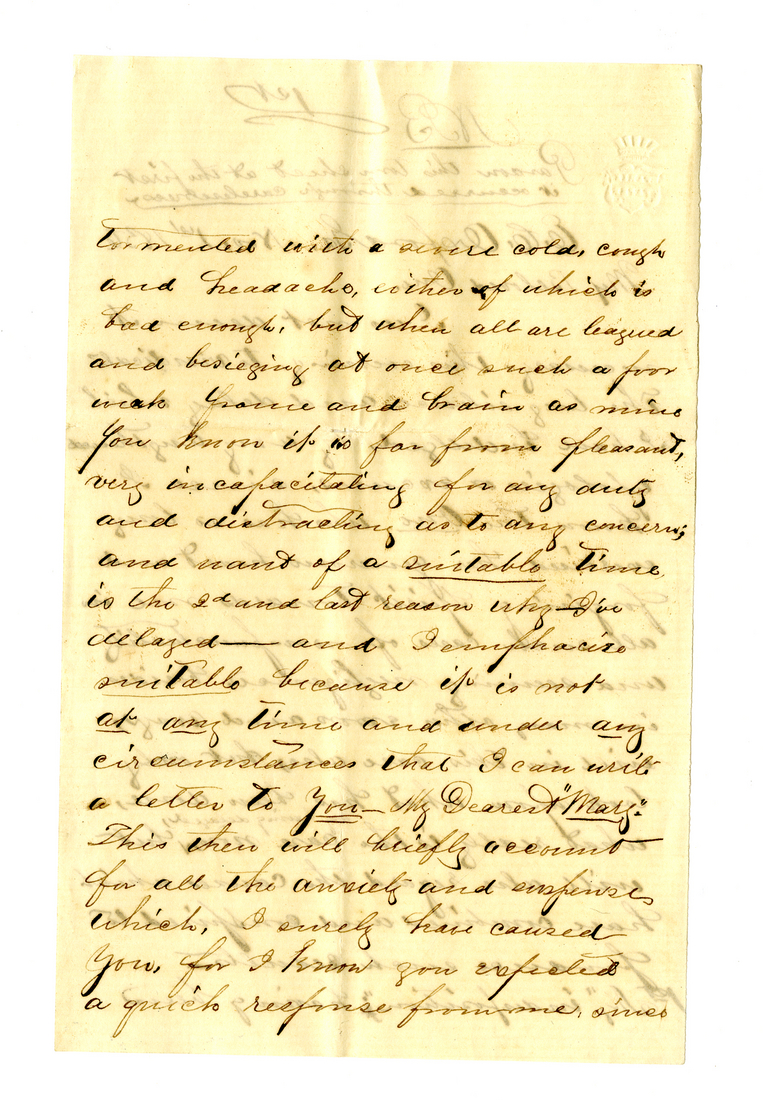 tormented with a severe cold, cough
and headache, either of which is
bad enough, but when all are leagued
and besieging at once such a poor
weak frame and brain as mine
You know it is far from pleasant,
very incapacitating for any duty
and distracting as to any concern;
and want of a suitable time
is the 2d and last reason why I've
delayed — and I emphacize
suitable because it is not
at any time and under any
circumstances that I can write
a letter to You — My Dearest "Mary".
This then will briefly account
for all the anxiety and suspense
which, I surely have caused
You, for I know you expected
a quick response from me, since